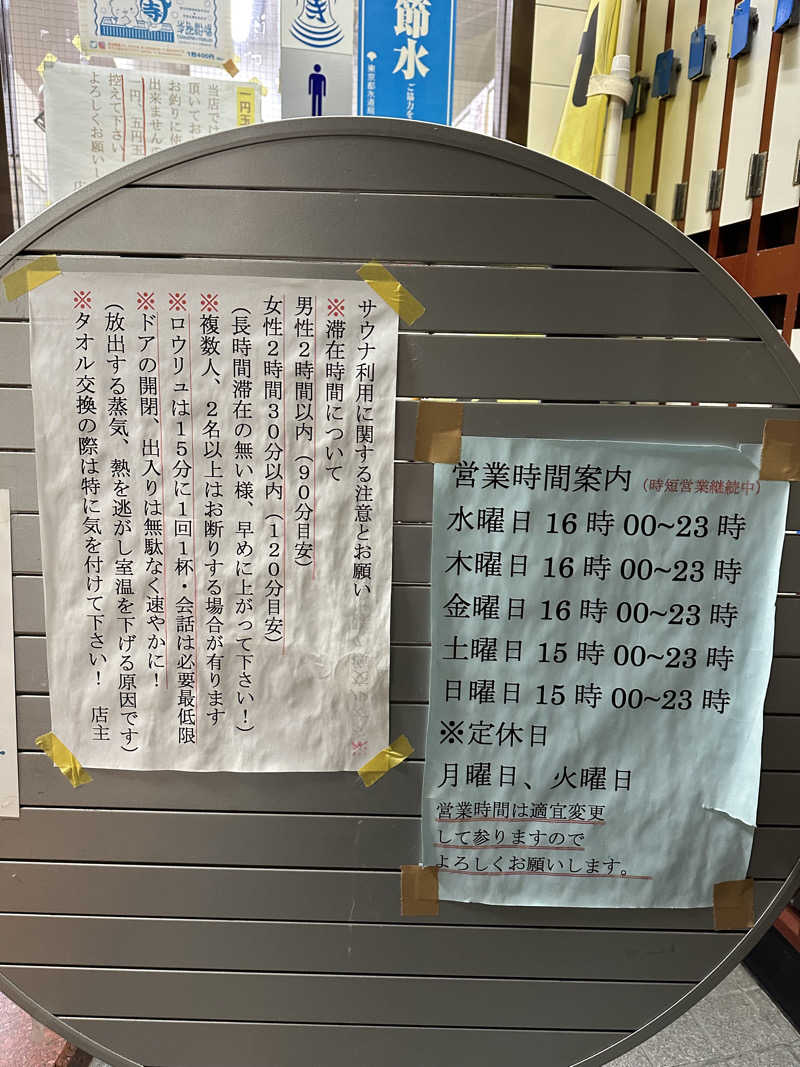 1枚400円
節水
ご協力を
東京都水道局
一円玉
当店では
頂いてお
お釣りに使
出来ません
一円、五円玉
控えて下さい
よろしくお願い
サウナ利用に関する注意とお願い
※滞在時間について
男性2時間以内（90分目安）
女性2時間30分以内（120分目安）
（長時間滞在の無い様、早めに上がって下さい！）
※複数人、2名以上はお断りする場合が有ります
※ロウリュは15分に1回1杯・会話は必要最低限
※ドアの開閉、出入りは無駄なく速やかに！
（放出する蒸気、熱を逃がし室温を下げる原因です）
※タオル交換の際は特に気を付けて下さい！　店主
営業時間案内（時短営業継続中）
水曜日 16時00~23時
木曜日 16時00~23時
金曜日 16時00~23時
土曜日 15時00~23時
日曜日 15時00~23時
※定休日
月曜日、火曜日
営業時間は適宜変更
して参りますので
よろしくお願いします。